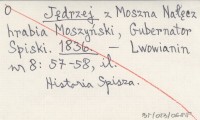 O Jędrzej z Moszna Nałęcz
hrabia Moszyński, Gubernator
Spiski. 1836. – Lwowianin
nr 8: 57-58, il.
Historia Spisza.